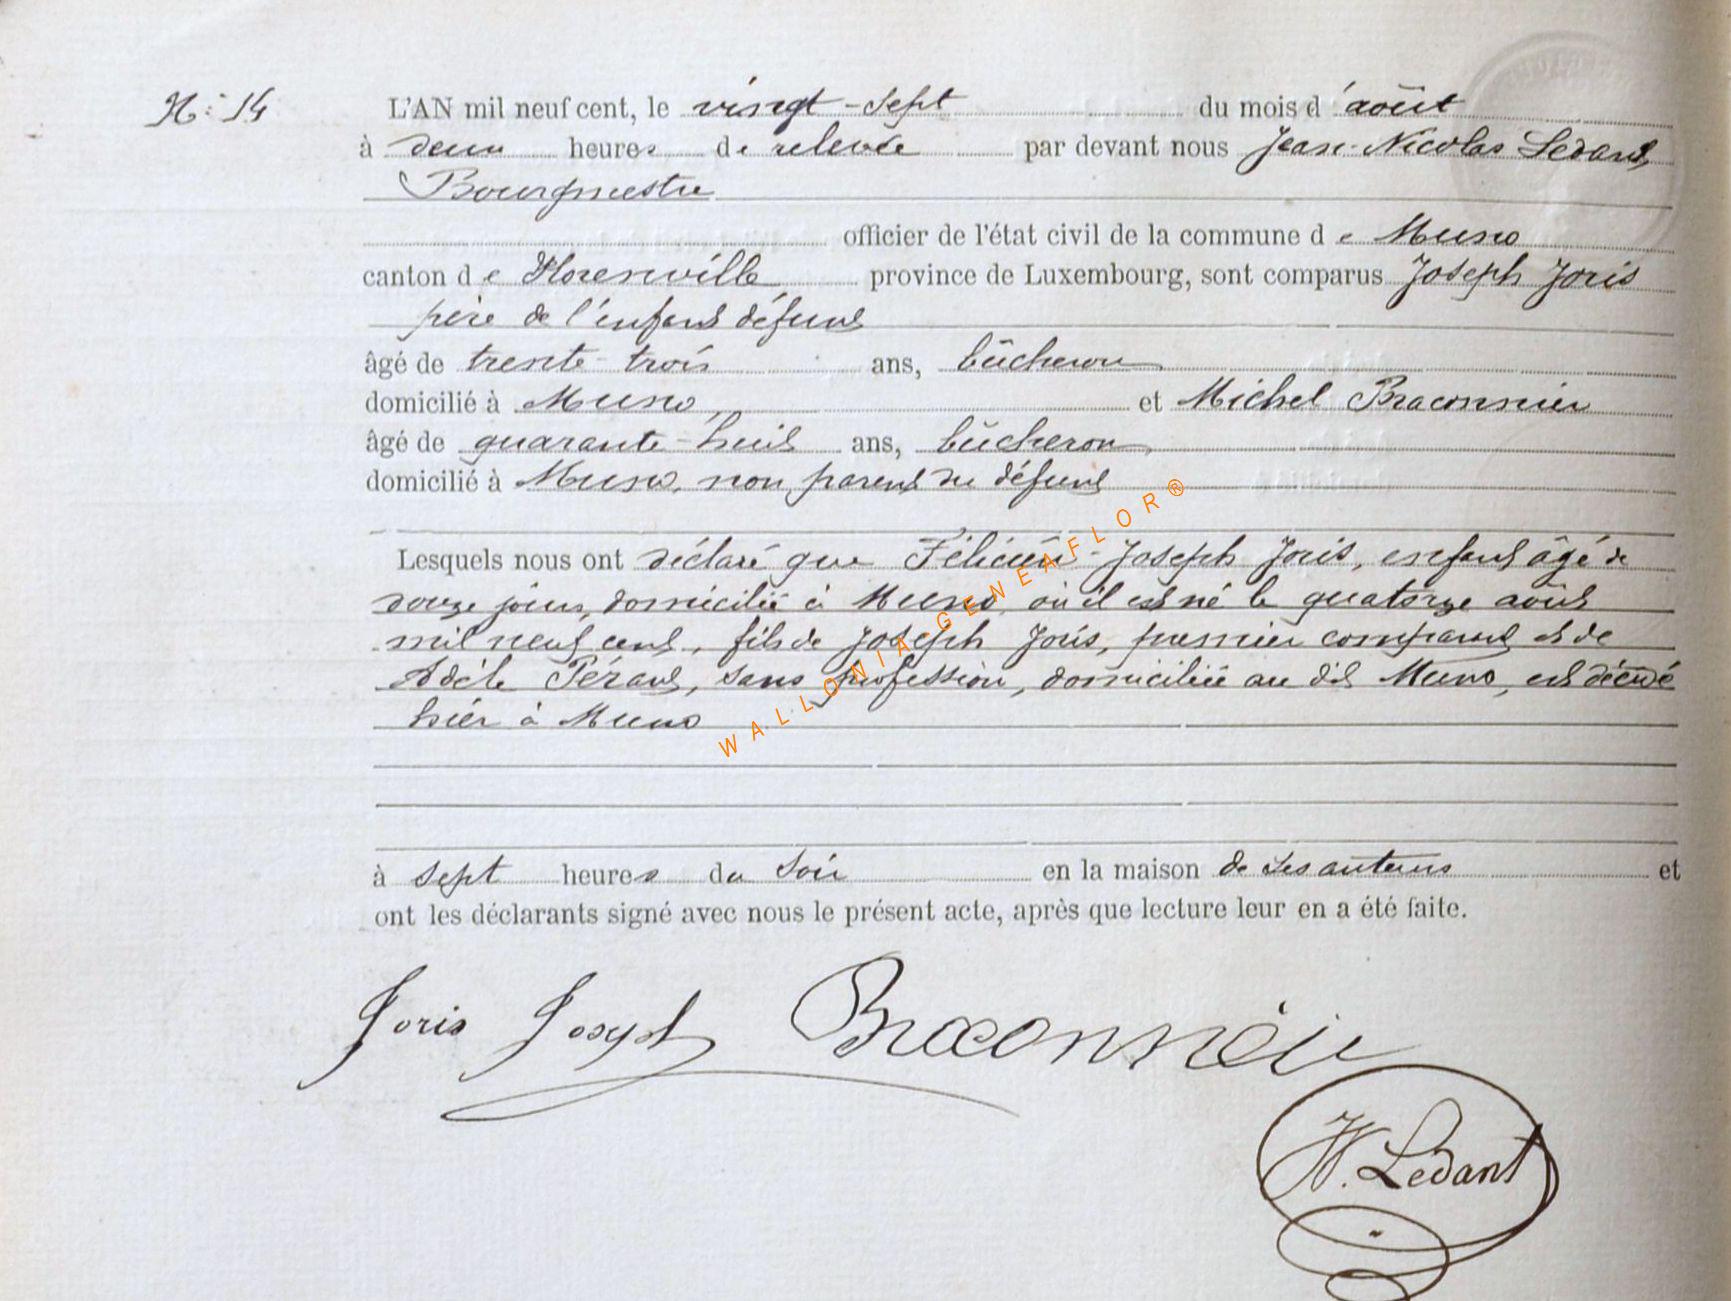 N: 14
L'AN mil neuf cent, le vingt-sept du mois d'août
à deux heures de relevée par devant nous Jean-Nicolas Ledant,
Bourgmestre
officier de l'état civil de la commune de Muno
canton de Florenville province de Luxembourg, sont comparus Joseph Joris
père de l'enfant défunt
âgé de trente-trois ans, bûcheron
domicilié à Muno, et Michel Braconnier
âgé de quarante-huit ans, bûcheron,
domicilié à Muno, non parent du défunt
Lesquels nous ont déclaré que Félicien-Joseph Joris, enfant âgé de
douze jours, domicilié à Muno, où il est né le quatorze août
mil neuf cent, fils de Joseph Joris, premier comparant et de
Adèle Pérard, sans profession, domiciliée au dit Muno, est décédé
hier à Muno
à sept heures du soir en la maison de ses auteurs et
ont les déclarants signé avec nous le présent acte, après que lecture leur en a été faite.
Joris Joseph Braconnier
N. Ledant
WALLONIA-GENEAFLOR®